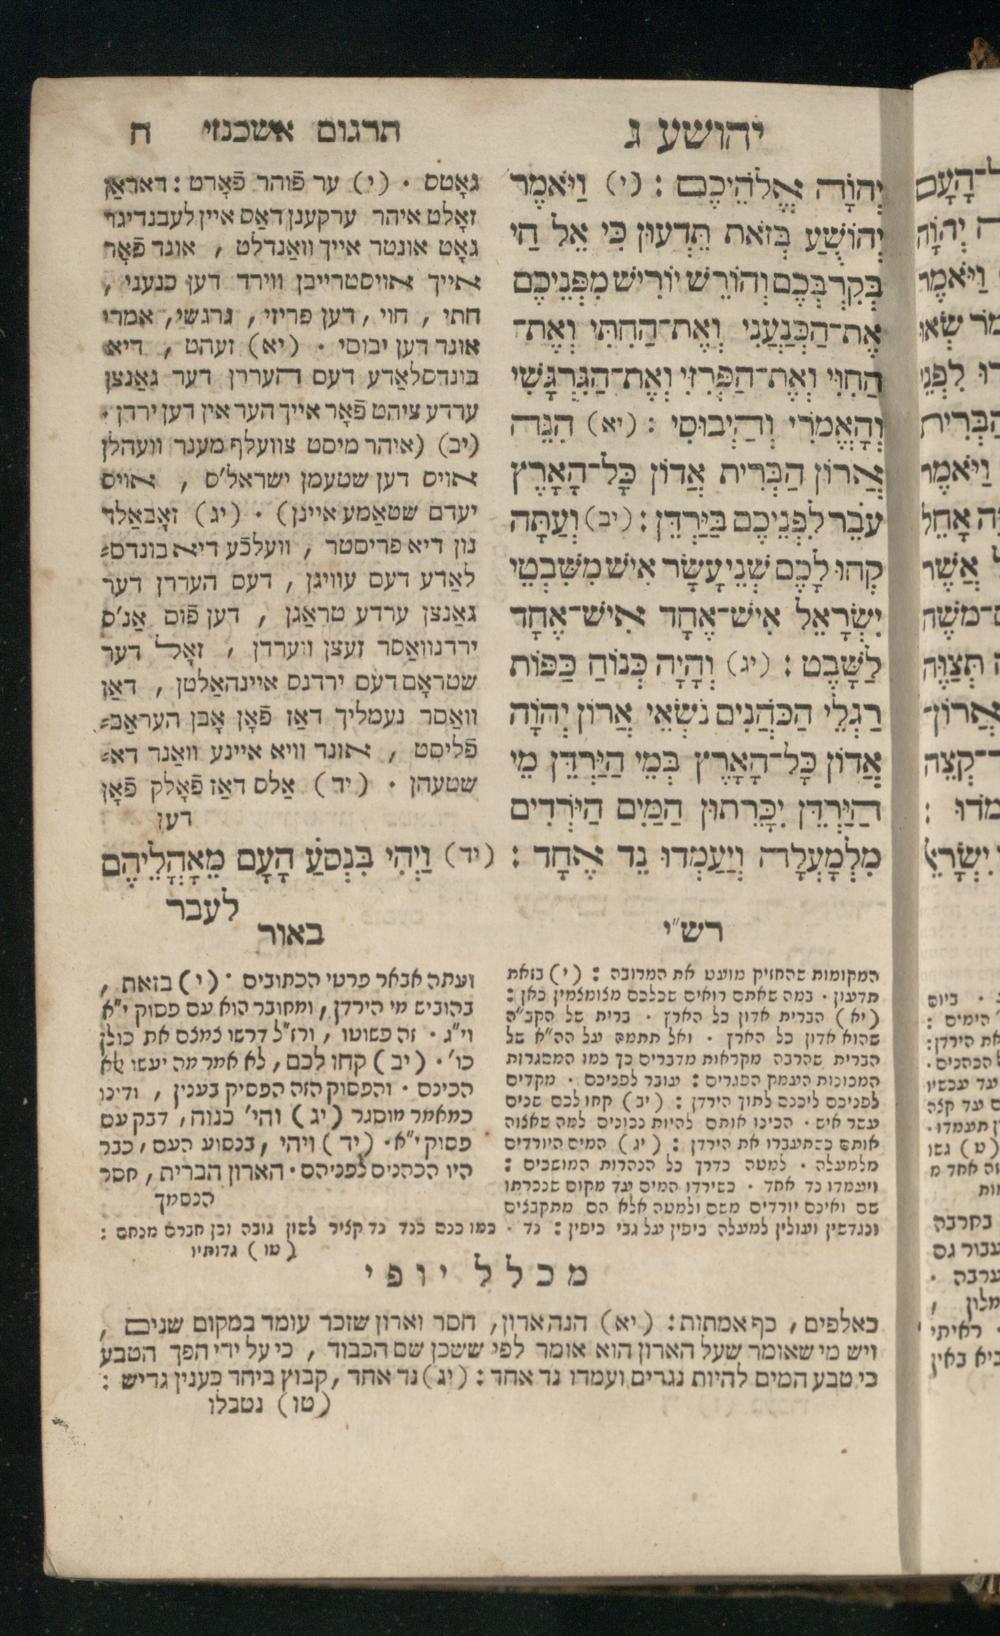 יהושע ג
תרגום אשכנזי
ח
יְהוָֹה אֱלֹהֵיכֶם : (י) וַיֹּאמֶר
יְהוֹשֻׁעַ בְּזֹאת תֵּדְעוּן כִּי אֵל חַי
בְּקִרְבְּכֶם וְהוֹרֵשׁ יוֹרִישׁ מִפְּנֵיכֶם
אֶת־הַכְּנַעֲנִי וְאֶת־הַחִתִּי וְאֶת־
הַחִוִּי וְאֶת־הַפְּרִזִּי וְאֶת־הַגִּרְגָּשִׁי
וְהָאֱמֹרִי וְהַיְבוּסִי : (יא) הִנֵּה
אֲרוֹן הַבְּרִית אֲדוֹן כָּל־הָאָרֶץ
עֹבֵר לִפְנֵיכֶם בַּיַּרְדֵּן : (יב) וְעַתָּה
קְחוּ לָכֶם שְׁנֵי עָשָׂר אִישׁ מִשִּׁבְטֵי
יִשְׂרָאֵל אִישׁ־אֶחָד אִישׁ־אֶחָד
לַשָּׁבֶט : (יג) וְהָיָה כְּנוֹחַ כַּפּוֹת
רַגְלֵי הַכֹּהֲנִים נֹשְׂאֵי אֲרוֹן יְהוָֹה
אֲדוֹן כָּל־הָאָרֶץ בְּמֵי הַיַּרְדֵּן מֵי
הַיַּרְדֵּן יִכָּרֵתוּן הַמַּיִם הַיֹּרְדִים
מִלְמָעְלָה וְיַעַמְדוּ נֵד אֶחָד : (יד) וַיְהִי בִּנְסֹעַ הָעָם מֵאָהֳלֵיהֶם
לעבר
גאָטס . (י) ער פֿוהר פֿאָרט : דאראַן
זאָלט איהר ערקענן דאַס איין לעבנדיגר
גאָט אונטר אייך וואַנדלט , אונד פֿאָר
אייך אויסטרייבן ווירד דען כנעני ,
חתי , חוי , דען פריזי , גרגשי , אמרי
אונד דען יבוסי . (יא) זעהט , דיא
בונדסלאַדע דעם העררן דער גאַנצן
ערדע ציהט פֿאָר אייך הער אין דען ירדן .
(יב) (איהר מיסט צוועלף מענר וועהלן
אויס דען שטעמן ישראל'ס , אויס
יעדם שטאַמע איינן) . (יג) זאָבאַלד
נון דיא פריסטר , וועלכֿע דיא בונדס=
לאַדע דעם עוויגן , דעם העררן דער
גאַנצן ערדע טראַגן , דען פֿוס אַנ'ס
ירדנוואַסר זעצן ווערדן , זאָלל דער
שטראָם דעם ירדנס איינהאַלטן , דאַן
וואַסר נעמליך דאַז פֿאָן אָבן העראַב=
פֿליסט , אונד וויא איינע וואַנד דא=
שטעהן . (יד) אַלס דאַז פֿאָלק פֿאָן
דען
רש"י
המקומות שהחזיק מועט את המרובה : (י) בזאת
תדעון . במה שאתם רואים שכלכם מצומצמין כאן :
(יא) הברית אדון כל הארץ . ברית של הקב"ה
שהוא אדון כל הארץ . ואל תתמה על הה"א של
הברית שהרבה מקראות מדברים כך כמו המסגרות
המכונות העמק הפגרים : עובר לפניכם . מקדים
לפניכם ליכנס לתוך הירדן : (יב) קחו לכם שנים
עשר איש . הכינו אותם להיות נכונים למה שאצוה
אותם כשתעברו את הירדן : (יג) המים היורדים
מלמעלה . למטה כדרך כל הנהרות המושכים :
ויעמדו נד אחד . כשירדו המים עד מקום שנכרתו
שם ואינם יורדים משם ולמטה אלא הם מתקבצים
ונגדשין ועולין למעלה כיפין על גבי כיפין : נד . כמו כנס כנד נד קציר לשון גובה וכן חברם מנחם :
(טו) גדותיו
באור
ועתה אבאר פרטי הכתובים . (י) בזאת ,
בהוביש מי הירדן , ומחובר הוא עם פסוק י"א
וי"ג . זה פשוטו , ורז"ל דרשו צמצם את כולן
כו' . (יב) קחו לכם , לא אמר מה יעשו לא
הכינם . והפסוק הזה הפסיק בענין , ודינו
כמאמר מוסגר (יג) והי' כנוח , דבק עם
פסוק י"א . (יד) ויהי , בנסוע העם , כבר
היו הכהנים לפניהם . הארון הברית , חסר
הנסמך
מכלל יופי
כאלפים , כף אמתות : (יא) הנה ארון , חסר וארון שזכר עומד במקום שנים ,
ויש מי שאומר שעל הארון הוא אומר לפי ששכן שם הכבוד , כי על ידי הפך הטבע
כי טבע המים להיות נגרים ועמדו נד אחד : (יג) נד אחד , קבוץ ביחד כענין גדיש :
(טו) נטבלו